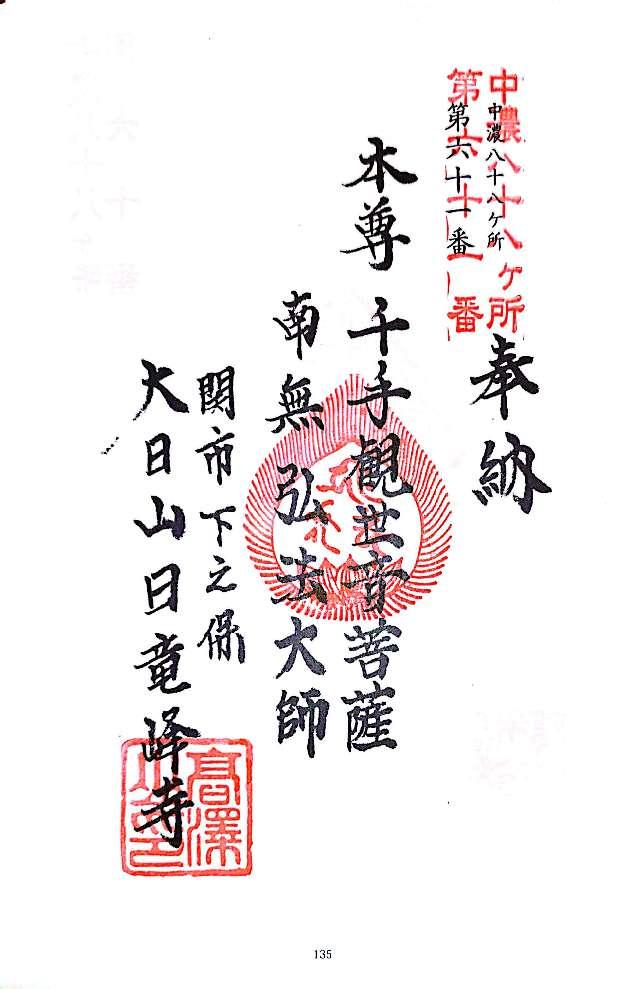 中濃八十八ケ所
第六十一番
中濃八十八ヶ所
第六十一番
奉納
本尊 千手観世音菩薩
南無弘法大師
関市下之保
大日山日竜峰寺
高澤
135